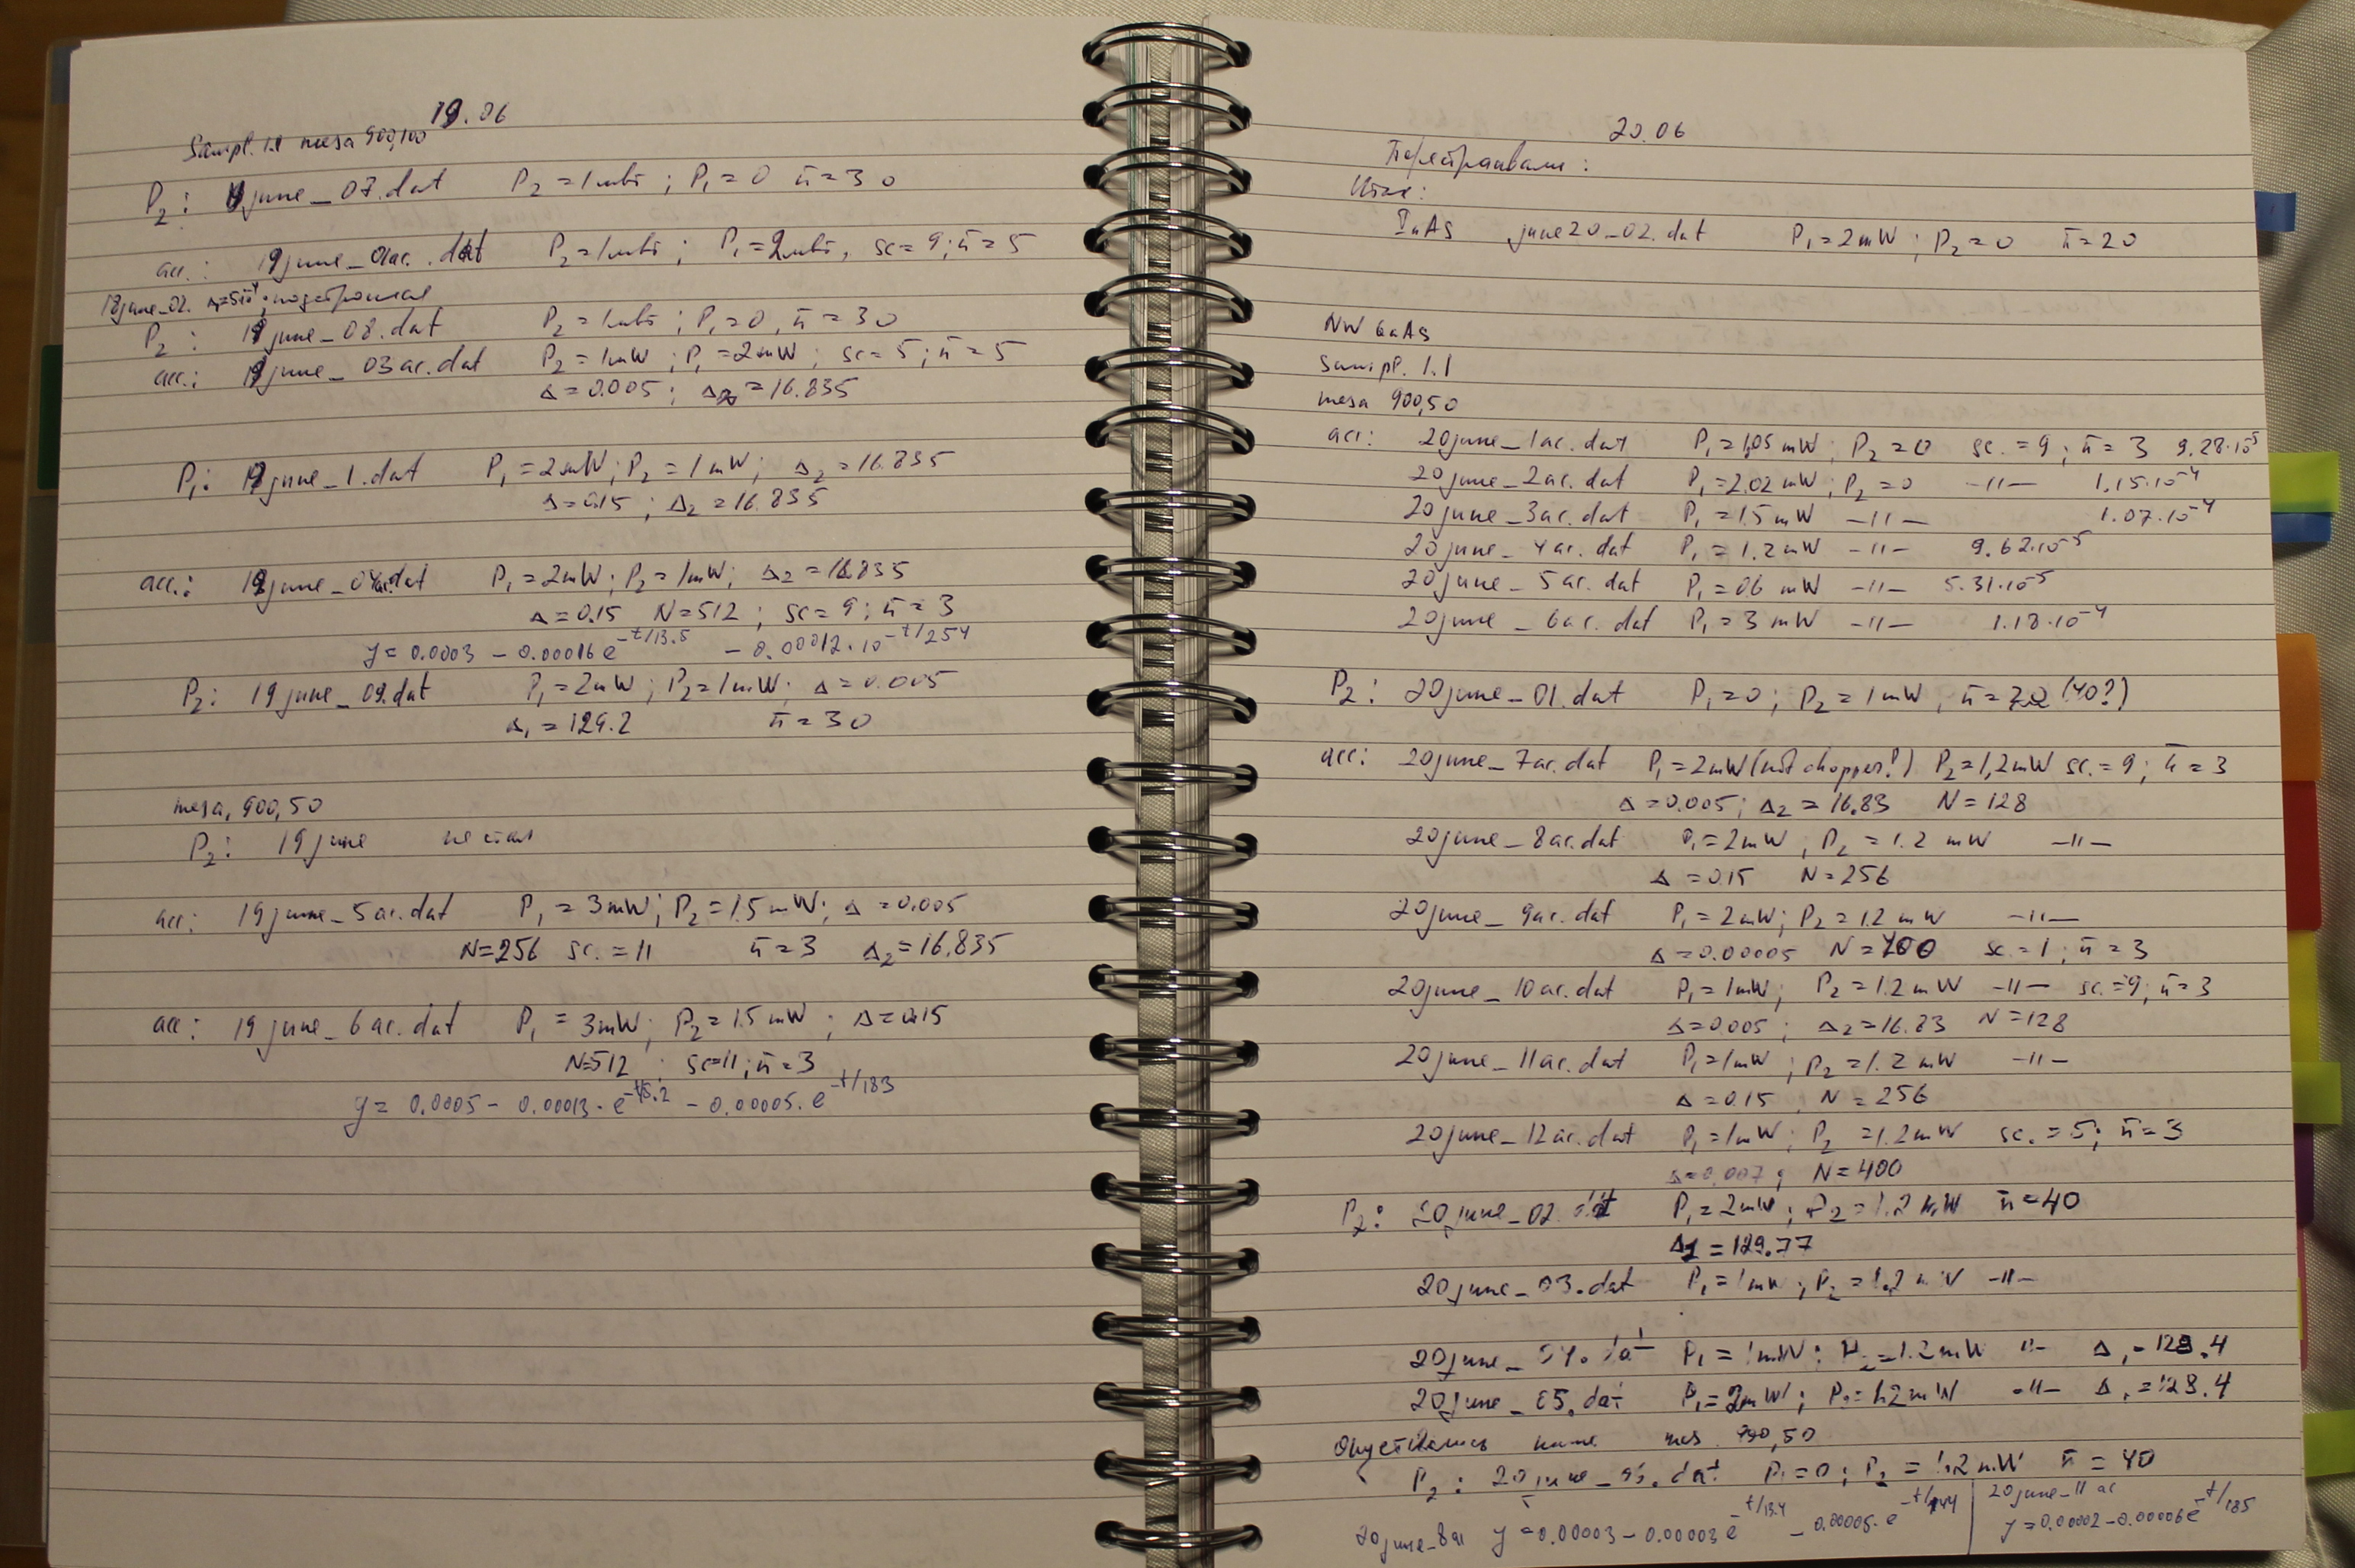 19.06
Sampl. 1.1 mesa 900,100
P₂: 19june_07.dat P₂=1mW; P₁=0 n̄=30
acc.: 19june_01ac.dat P₂=1mW; P₁=2mW, sc=9; n̄=5
18june_02. подстроился
P₂: 19june_08.dat P₂=1mW; P₁=0, n̄=30
acc.: 19june_03ac.dat P₂=1mW; P₁=2mW; sc=5; n̄=5
Δ=0.005; Δ₂=16.835
P₁: 19june_1.dat P₁=2mW; P₂=1mW; Δ₂=16.835
Δ=0.15; Δ₂=16.835
acc.: 19june_04ac.dat P₁=2mW; P₂=1mW; Δ₂=16.835
Δ=0.15 N=512; sc=9; n̄=3
y=0.0003 - 0.00016e^-t/13.5 - 0.00012·10^-t/254
P₂: 19june_09.dat P₁=2mW; P₂=1mW; Δ=0.005
Δ₁=129.2 n̄=30
mesa, 900,50
P₂: 19june
acc: 19june_5ac.dat P₁=3mW; P₂=1.5mW; Δ=0.005
N=256 sc.=11 n̄=3 Δ₂=16.835
acc: 19june_6ac.dat P₁=3mW; P₂=1.5mW; Δ=0.15
N=512; sc=11; n̄=3
y=0.0005-0.00013·e^-t/5.2 - 0.00005·e^-t/183
20.06
Перестраивали:
InAs june20_02.dat P₁=2mW; P₂=0 n̄=20
NW GaAs
Sampl. 1.1
mesa 900,50
acc: 20june_1ac.dat P₁=1,05mW; P₂=0 sc.=9; n̄=3 9.28·10⁻⁵
20june_2ac.dat P₁=2.02mW; P₂=0 -11- 1.15·10⁻⁴
20june_3ac.dat P₁=1.5mW -11- 1.07·10⁻⁴
20june_4ac.dat P₁=1.2mW -11- 9.62·10⁻⁵
20june_5ac.dat P₁=06mW -11- 5.31·10⁻⁵
20june_6ac.dat P₁=3mW -11- 1.18·10⁻⁴
P₂: 20june_01.dat P₁=0; P₂=1mW, n̄=70 (40?)
acc: 20june_7ac.dat P₁=2mW (not chopper!) P₂=1,2mW sc.=9; n̄=3
Δ=0.005; Δ₂=16.83 N=128
20june_8ac.dat P₁=2mW, P₂=1.2mW -11-
Δ=0.15 N=256
20june_9ac.dat P₁=2mW; P₂=1.2mW -11-
Δ=0.00005 N=400 sc=1; n̄=3
20june_10ac.dat P₁=1mW; P₂=1.2mW -11- sc.=9; n̄=3
Δ=0.005; Δ₂=16.83 N=128
20june_11ac.dat P₁=1mW; P₂=1.2mW -11-
Δ=0.15, N=256
20june_12ac.dat P₁=1mW; P₂=1.2mW sc.=5; n̄=3
Δ=0.007; N=400
P₂: 20june_02.dat P₁=2mW; P₂=1.2mW n̄=40
Δ1=129.77
20june_03.dat P₁=1mW; P₂=1.2mW -11-
20june_04.dat P₁=1mW; P₂=1.2mW 11- Δ₁=128.4
20june_05.dat P₁=2mW; P₂=1.2mW -11- Δ₁=128.4
Опустились ниже mes. 900,50
P₂: 20june_ P₁=0; P₂=1.2mW n̄=40
20june_8ac y=0.00003-0.00003e^-t/13.4 - 0.00005·e^-t/144
20june_11ac
y=0.00002-0.00006e^-t/185